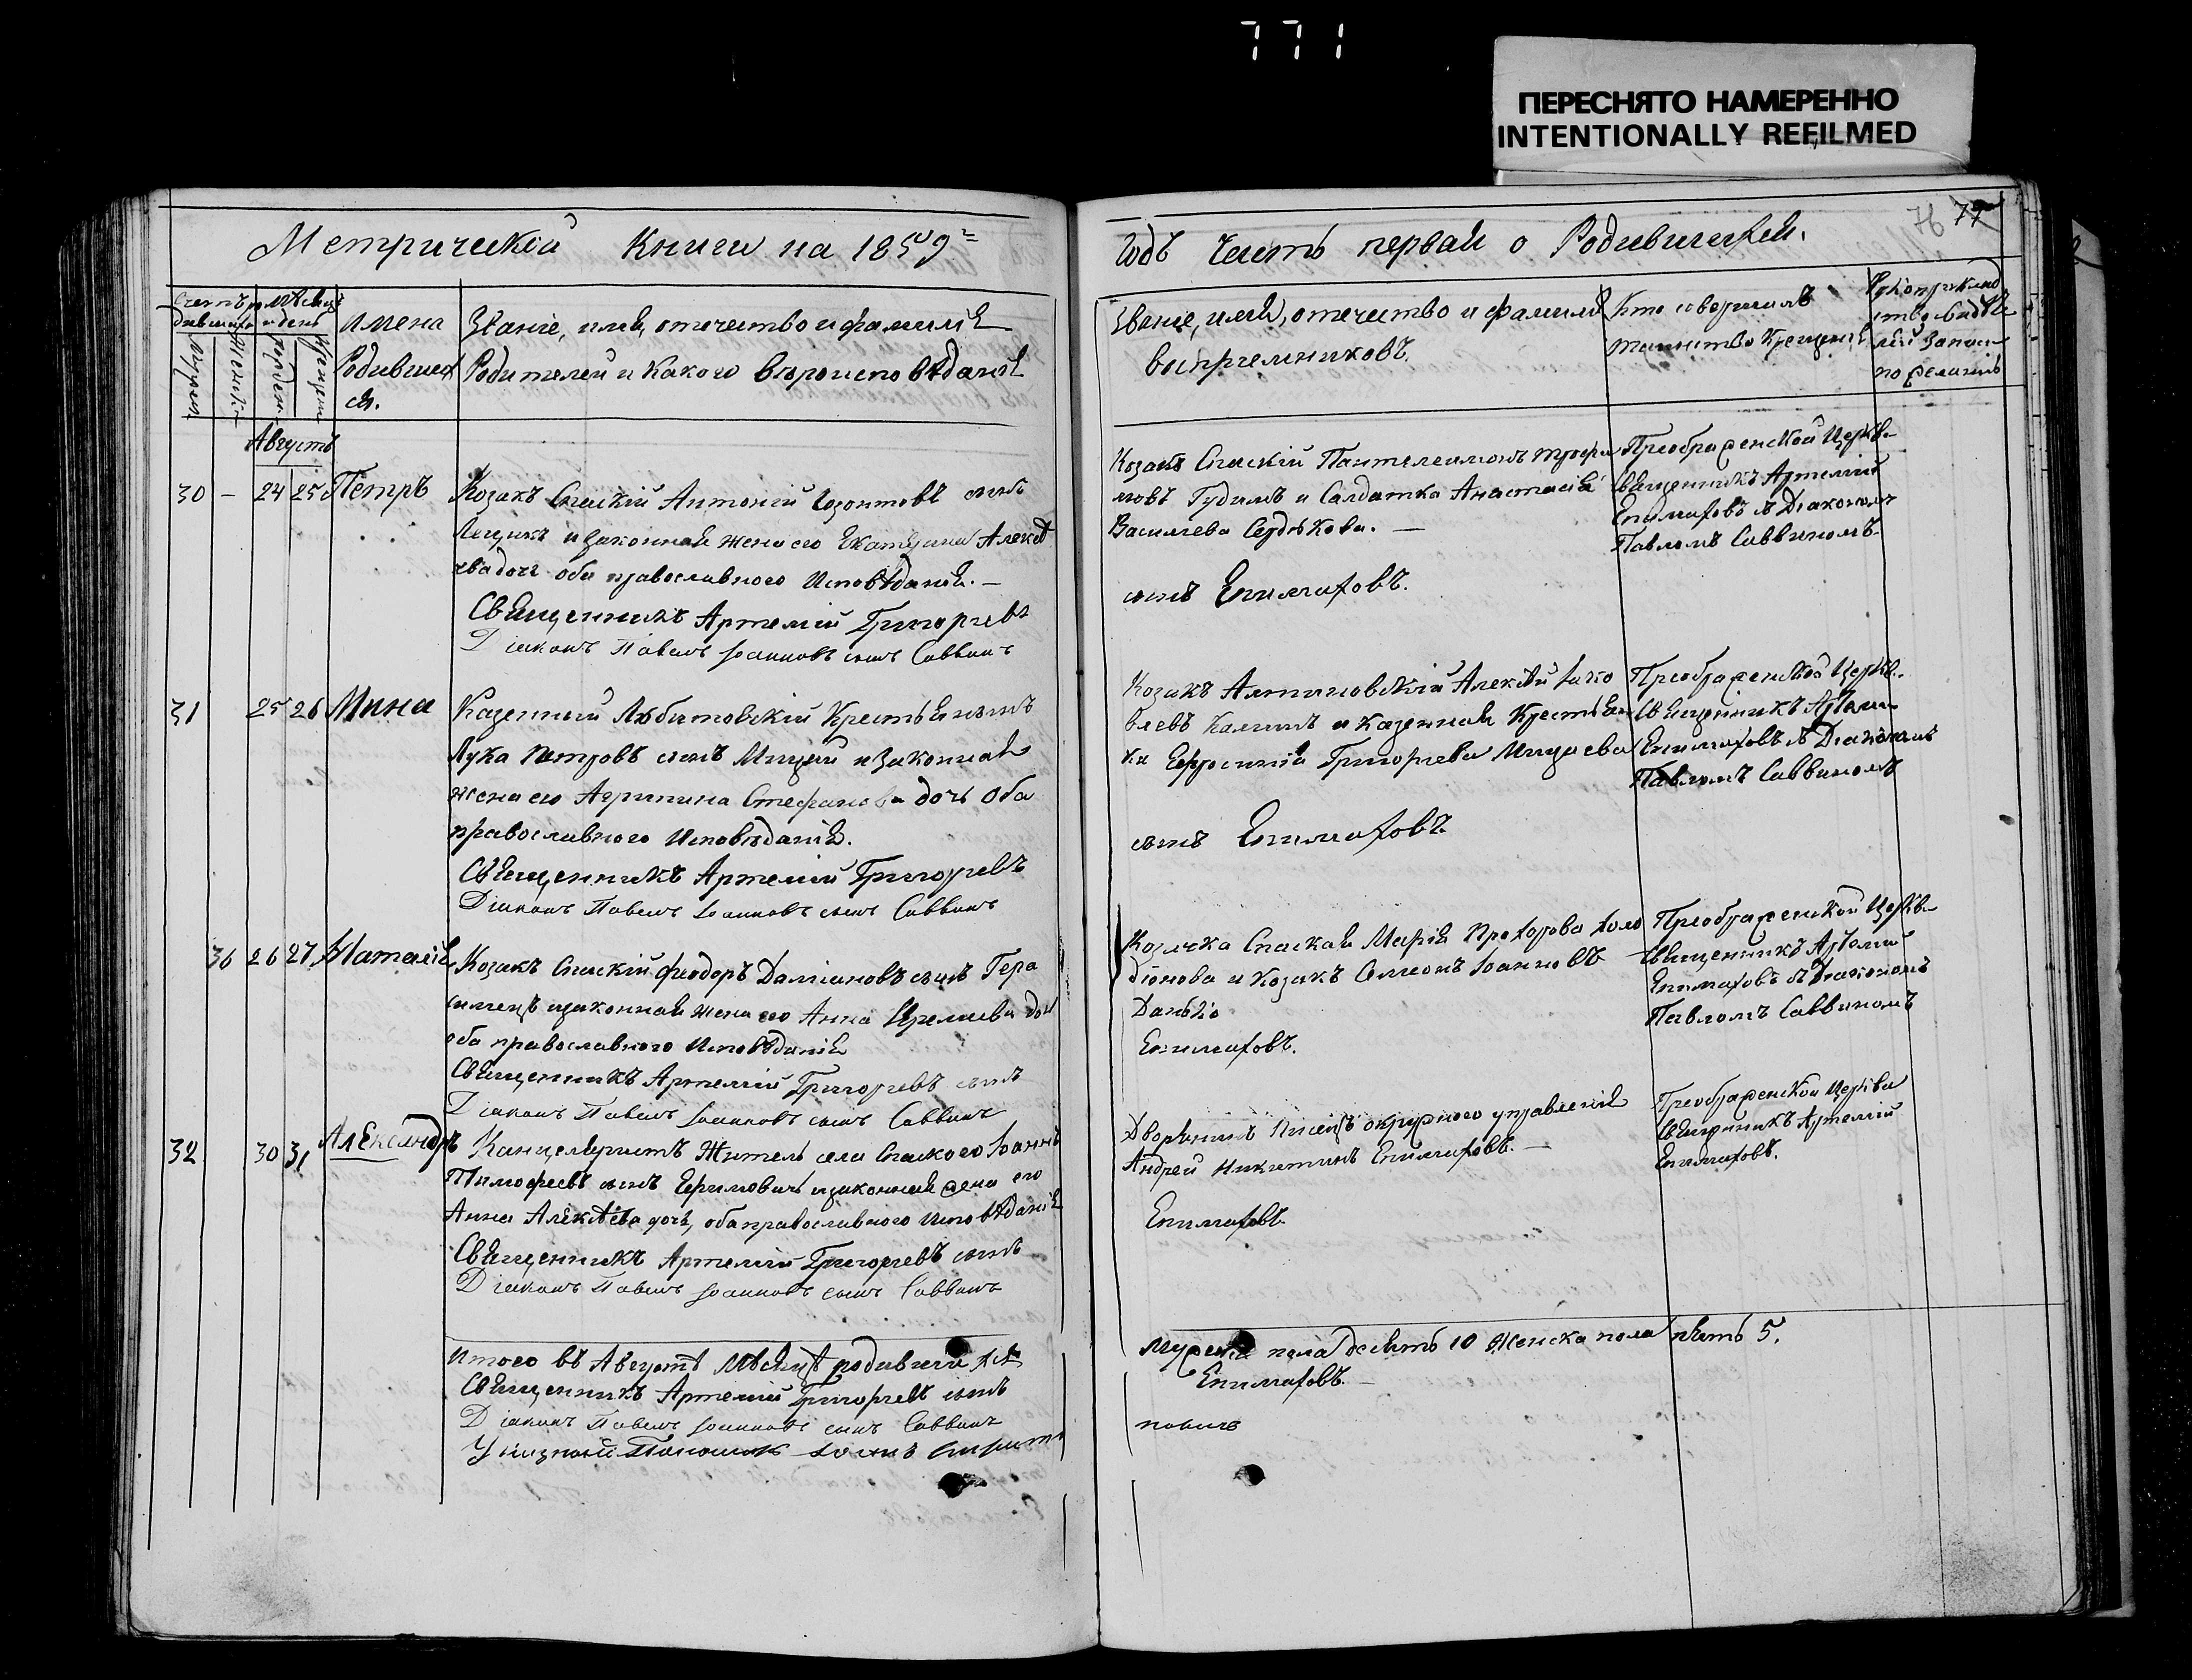 771
ПЕРЕСНЯТО НАМЕРЕННО
INTENTIONALLY REFILMED
76 77
Метрической Книги на 1859й
Годъ Часть первая о Родившихся.
Имена
Родивших
ся.
Званіе, имя, отечество и фамилія
Родителей и какого вѣроисповѣданія
Званіе, имя, отечество и фамилія
воспріемниковъ.
Кто совершилъ
таинство Крещенія
Августъ
30 – 24 25 Петръ
Козакъ Спаскій Антоній сынъ
Лещикъ и законная жена его Екатерина Алексѣ
ева дочь оба православного Исповѣданія. –
Священникъ Артемій Григорьевъ
Діаконъ Павелъ Іоанновъ сынъ Саввинъ
Козакъ Спаскій Пантелеимонъ Трофи
мовъ Гудимъ и Салдатка Анастасія
Василиева Сердюкова. –
сынъ Епимаховъ.
Преображенской Церкви
Священникъ Артемій
Епимаховъ съ Діакономъ
Павломъ Саввиномъ.
31 25 26 Мина
Казенный Крестьянинъ
Лука Петровъ сынъ Мицай и Законная
жена его Агрипина Стефанова дочь Оба
православного Исповѣданія.
Священникъ Артемій Григорьевъ
Діаконъ Павелъ Іоанновъ сынъ Саввинъ
Козакъ Алексѣй Іако
влевъ Калинъ и казенная Крестьян
ка Ефросинія Григорьева Мицаева
сынъ Епимаховъ.
Преображенской Церкви
Священникъ Артемій
Епимаховъ съ Діакономъ
Павломъ Саввиномъ
36 26 27 Наталія
Козакъ Спаскій Феодоръ Даміановъ сынъ Гера
сименъ и законная жена его Анна Іереміева дочь
оба православного Исповѣданія
Священникъ Артемій Григорьевъ сынъ
Діаконъ Павелъ Іоанновъ сынъ Саввинъ
Козачка Спаская Марія Прохорова Холо
діонова и Козакъ Симеонъ Іоанновъ
Данько
Епимаховъ.
Преображенской Церкви
Священникъ Артемій
Епимаховъ съ Діакономъ
Павломъ Саввиномъ
32 30 31 Александръ
Канцеляристъ Житель села Спаского Іоаннъ
Тимофеевъ сынъ Ефимовичъ и законная жена его
Анна Алексѣева дочь, оба православного Исповѣданія
Священникъ Артемій Григорьевъ сынъ
Діаконъ Павелъ Іоанновъ сынъ Саввинъ
Дворянинъ Писецъ окружного управленія
Андрей Никитинъ Епимаховъ. –
Епимаховъ.
Преображенской Церкви
Священникъ Артемій
Епимаховъ.
Итого въ Августѣ Мѣсяцѣ родившихся
Мужска пола десять 10 Женска пола пять 5.
Священникъ Артемій Григорьевъ сынъ
Епимаховъ. –
Діаконъ Павелъ Іоанновъ сынъ Саввинъ
Указной Пономарь